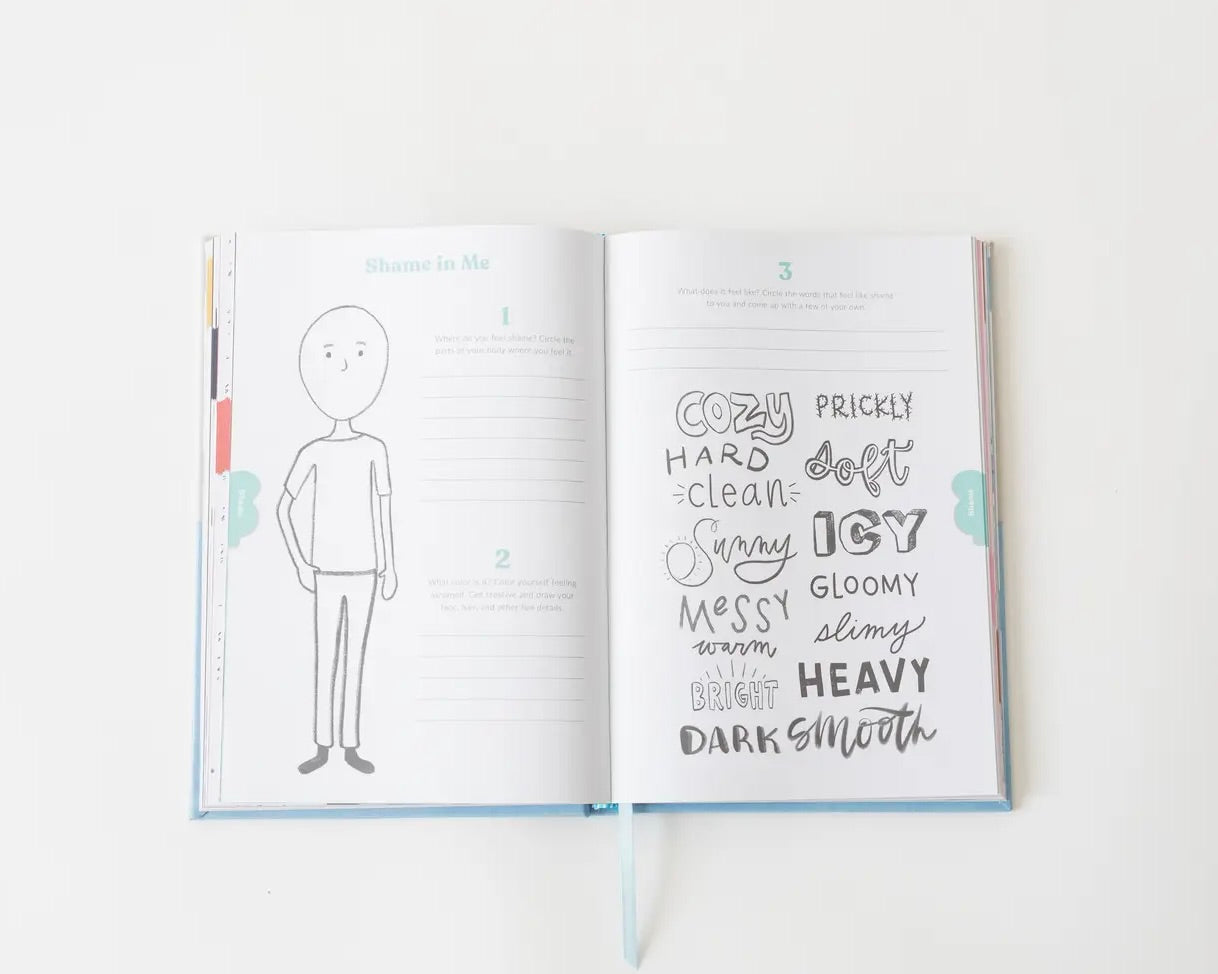 Shame in Me
1
Where do you feel shame? Circle the
parts of your body where you feel it.
2
What color is it? Color yourself feeling
ashamed. Get creative and draw your
face, hair, and other fun details.
3
What does it feel like? Circle the words that feel like shame
to you and come up with a few of your own.
COZY
PRICKLY
HARD
soft
clean
Sunny
ICY
MeSSY
GLOOMY
warm
slimy
BRIGHT
HEAVY
DARK
smooth
Shame
Shame